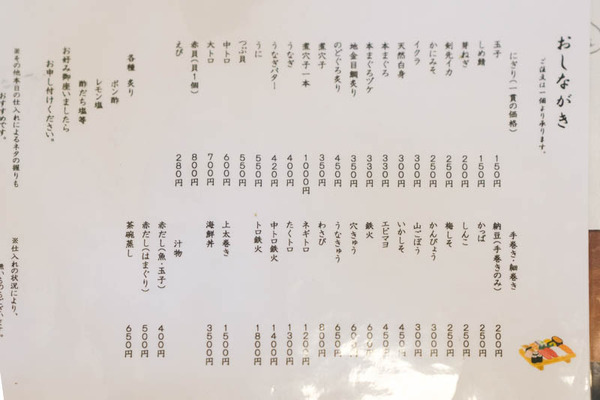 おしながき
ご注文は一個より承ります。
にぎり(一貫の価格)
玉子 150円
しめ鯖 150円
芽ねぎ 200円
剣先イカ 250円
かにみそ 250円
イクラ 300円
天然白身 300円
本まぐろ 330円
本まぐろヅケ 330円
地金目鯛炙り 350円
のどぐろ炙り 450円
煮穴子 350円
煮穴子一本 1000円
うなぎ 400円
うなぎバター 420円
うに 550円
つぶ貝 550円
中トロ 600円
大トロ 700円
赤貝(貝1個) 800円
えび 280円
各種 炙り
ポン酢
レモン塩
酢だち塩等
お好み御座いましたら
お申し付けください。
※その他本日の仕入れによるネタの握りも
おすすめです。
手巻き・細巻き
納豆(手巻きのみ) 200円
かっぱ 250円
しんこ 250円
梅しそ 250円
かんぴょう 300円
山ごぼう 300円
いかしそ 450円
エビマヨ 450円
鉄火 600円
穴きゅう 600円
うなきゅう 650円
わさび 800円
ネギトロ 1200円
たくトロ 1300円
中トロ鉄火 1400円
トロ鉄火 1800円
上太巻き 1500円
海鮮丼 3500円
汁物
赤だし(魚・玉子) 400円
赤だし(はまぐり) 500円
茶碗蒸し 650円
※仕入れの状況により、